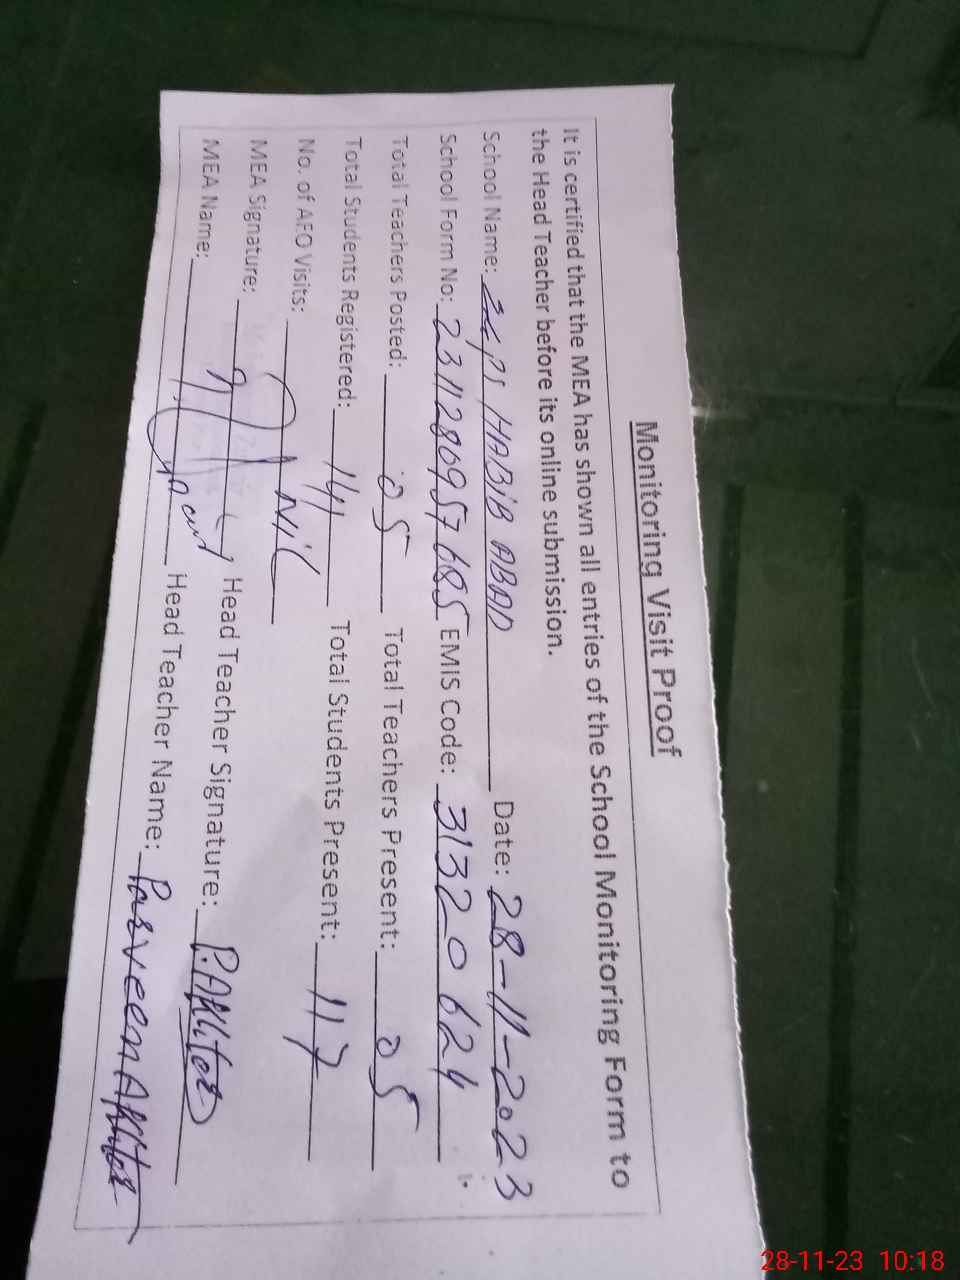 Monitoring Visit Proof
It is certified that the MEA has shown all entries of the School Monitoring Form to
the Head Teacher before its online submission.
School Name: HABIB ABAD Date: 28-11-2023
School Form No: 2311280957685 EMIS Code: 31320624
Total Teachers Posted: 05 Total Teachers Present: 05
Total Students Registered: 141 Total Students Present: 117
No. of AEO Visits: Nil
MEA Signature: Head Teacher Signature: P.AKhter
MEA Name: Head Teacher Name: Parveen AKhter
28-11-23 10:18